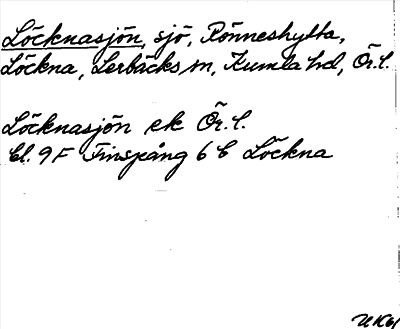 Löcknasjön, sjö, Rönneshytta,
Löckna, Lerbäcks sn, Kumla hd, Ör. l.
Löcknasjön ek Ör. l.
bl. 9 F Finspång 6 C Löckna